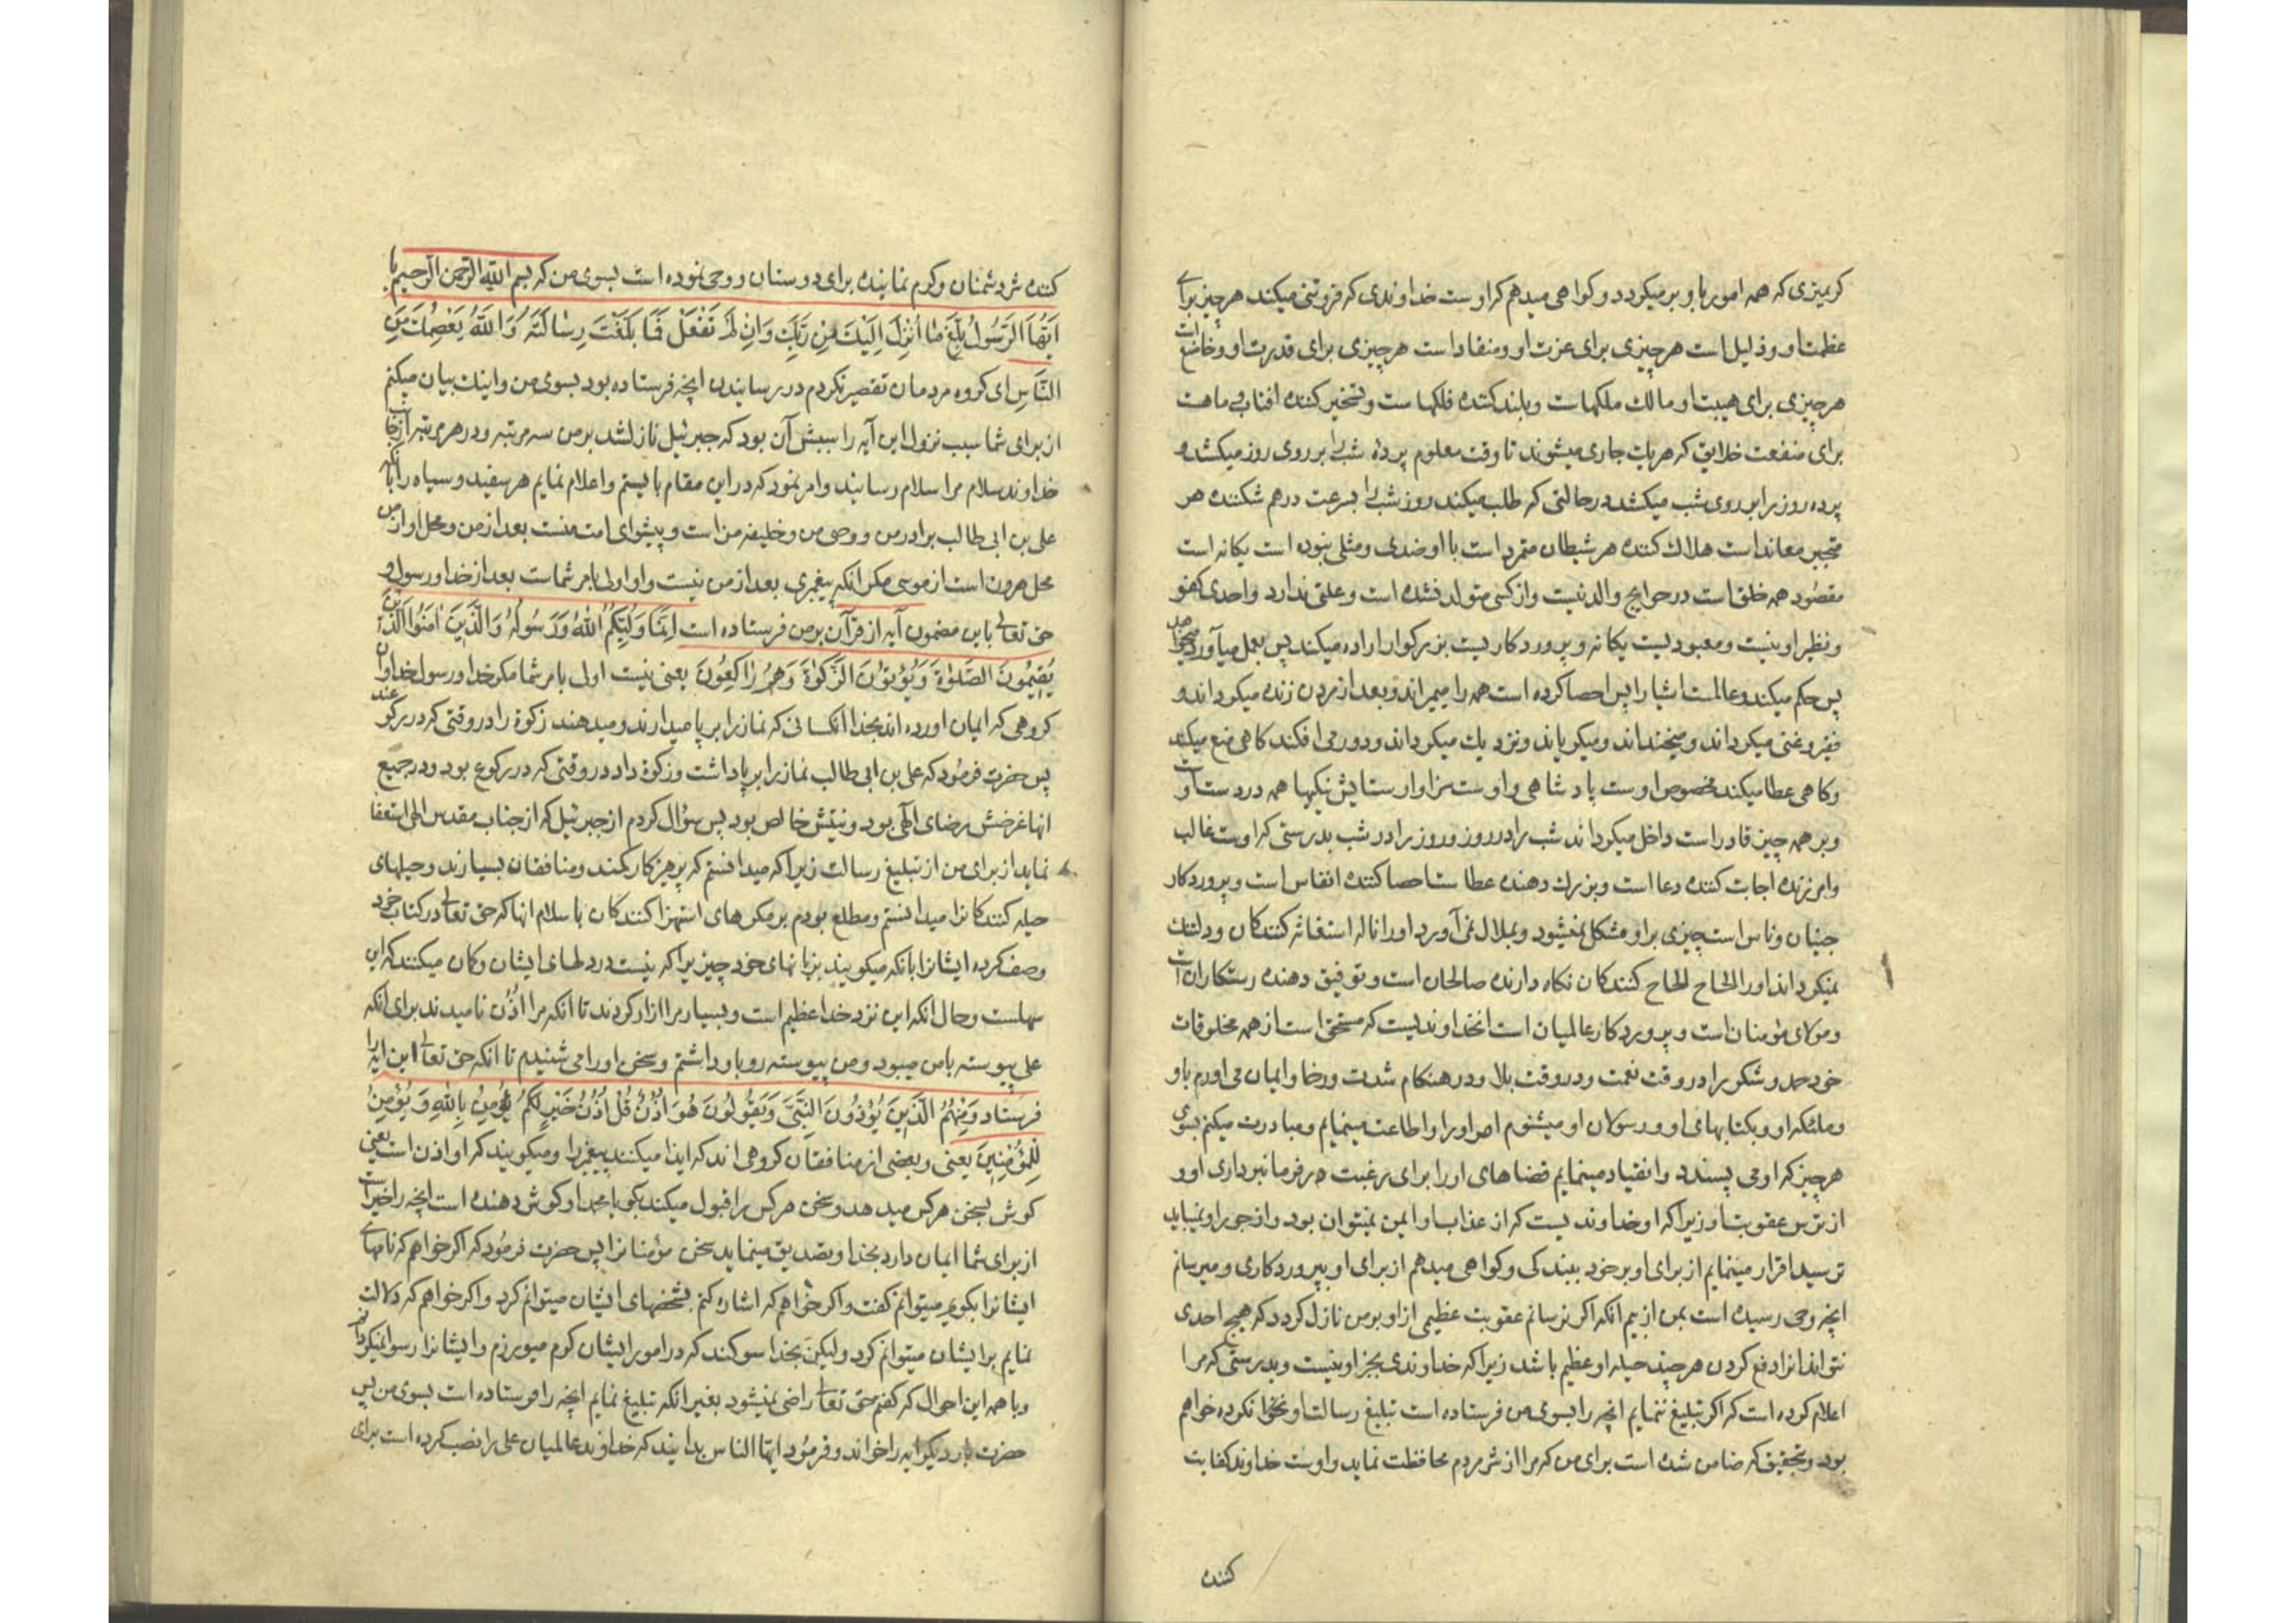 کریمزی که همه امور باو بر میکردد و کواهی میدهم که اوست خداوندی که فروتنی میکند هر چیز برای
عظمت او و ذلیل است هر چیزی برای عزت او و منقاد است هر چیزی برای قدرت او و خاضع است
هر چیزی برای هیبت او مالك ملکهاست و بلند کننده فلکهاست و تسخیر کننده افتاب و ماهست
برای منفعت خلایق که هر یك جاری میشوند تا وقت معلوم پرده شب را بر روی روز میکشد و
پرده روز را بر روی شب میکشد در حالتی که طلب میکند روز شب را بسرعت درهم شکننده هر
متجبر معاند است هلاك کننده هر شیطان متمرد است با او ضدی و مثلی نبوده است یکانه است
مقصود همه خلق است در حوایج والد نیست و از کسی متولد نشده است و علتی ندارد واحدی کفو
و نظیر او نیست و معبودیست یکانه و پروردکاریست بزرکوار اراده میکند پس بعمل میآورد میخواهد
پس حکم میکند و عالمست اشیا را پس احصا کرده است همه را میمیراند و بعد از مردن زنده میکرداند و
فقیر و غنی میکرداند و میخنداند و میکریاند و نزدیك میکرداند و دور می افکند کاهی منع میکند
و کاهی عطا میکند مخصوص اوست پادشاهی و اوست سزاوار ستایش نیکیها همه در دست اوست
و بر همه چیز قادر است داخل میکرداند شب را در روز و روز را در شب بدرستی که اوست غالب
و امرزنده اجابت کننده دعا است و بزرك دهنده عطاست احصا کننده انفاس است و پروردکار
جنیان و ناس است چیزی بر او مشکل نمیشود و بملال نمی آورد او را ناله استغاثه کنندکان و دلتنك
نمیکرداند او را الحاح الحاح کنندکان نکاه دارنده صالحان است و توفیق دهنده رستکاران است
و مولای مؤمنان است و پروردکار عالمیان است انخداوندیست که مستحق است از همه مخلوقات
خود حمد و شکر را در وقت نعمت و در وقت بلا و در هنکام شدت و رخا و ایمان می اورم باو
و ملئکه او و بکتابهای او و رسولان او میشنوم امر او را و اطاعت مینمایم و مبادرت میکنم بسوی
هر چیز که او می پسندد و انقیاد مینمایم قضاهای او را برای رغبت در فرمانبرداری او و
از ترس عقوبت او زیرا که او خداوندیست که از عذاب او ایمن نمیتوان بود و از جور او نمیباید
ترسید اقرار مینمایم از برای او بر خود ببندکی و کواهی میدهم از برای او بپروردکاری و میرسانم
انچه وحی رسیده است بمن از بیم انکه اکر نرسانم عقوبت عظیمی از او بر من نازل کردد که هیچ احدی
نتواند انرا دفع کردن هر چند حیله او عظیم باشد زیرا که خداوندی بجز او نیست و بدرستی که مرا
اعلام کرده است که اکر تبلیغ ننمایم انچه را بسوی من فرستاده است تبلیغ رسالت او نخوا نکرده خواهم
بود و بتحقیق که ضامن شده است برای من که مرا از شر مردم محافظت نماید و اوست خداوند کفایت
کننده
کننده شر دشمنان و کرم نماینده برای دوستان و وحی نموده است بسوی من که بسم الله الرحمن الرحیم یا
اَیُّهَا الرَّسُولُ بَلِّغْ مٰا اُنْزِلَ اِلَیْكَ مِنْ رَبِّكَ وَاِنْ لَمْ تَفْعَلْ فَمَا بَلَّغْتَ رِسٰالَتَهُ وَاللهُ یَعْصِمُكَ مِنَ
النّٰاسِ ای کروه مردمان تقصیر نکردم در رسانیدن انچه فرستاده بود بسوی من و اینك بیان میکنم
از برای شما سبب نزول این آیه را سببش آن بود که جبرئیل نازل شد بر من سه مرتبه و در هر مرتبه از جانب
خداوند سلام مرا سلام رسانید و امر نمود که در این مقام بایستم و اعلام نمایم هر سفید و سیاه را بانکه
علی بن ابی طالب برادر من و وصی من و خلیفه من است و پیشوای امت منست بعد از من و محل او از من
محل هرون است از موسی مکر انکه پیغمبری بعد از من نیست و او اولی بامر شماست بعد از خدا و رسول و
حق تعالی باین مضمون آیه از قرآن بر من فرستاده است اِنَّمٰا وَلِیُّکُمُ اللهُ وَرَسُولُهُ وَالَّذینَ اٰمَنُوا الَّذینَ
یُقیمُونَ الصَّلوٰةَ وَیُؤْتُونَ الزَّکٰوةَ وَهُمْ رٰاکِعُونَ یعنی نیست اولی بامر شما مکر خدا و رسول خدا و ان
کروهی که ایمان اورده اند بخدا انکسانی که نماز را بر پا میدارند و میدهند زکوة را در وقتی که در رکوعند
پس حضرت فرمود که علی بن ابی طالب نماز را بر پا داشت و زکوة داد در وقتی که در رکوع بود و در جمیع
انها غرضش رضای الهی بود و نیتش خالص بود پس سؤال کردم از جبرئیل که از جناب مقدس الهی استعفا
نماید از برای من از تبلیغ رسالت زیرا که میدانستم که پرهیزکار کمند و منافقان بسیارند و حیلهای
حیله کنندکان را میدانستم و مطلع بودم بر مکرهای استهزا کنندکان باسلام انها که حق تعالی در کتاب خود
وصف کرده ایشانرا بانکه میکویند بزبانهای خود چیزیرا که نیست در دلهای ایشان و کان میکنند که این
سهلست و حال انکه این نزد خدا عظیم است و بسیار مرا ازار کردند تا انکه مرا اُذُن نامیدند برای انکه
علی پیوسته با من میبود و من پیوسته رو باو داشتم و سخن او را می شنیدم تا انکه حق تعالی این ایه را
فرستاد وَمِنْهُمُ الَّذینَ یُؤْذُونَ النَّبِیَّ وَیَقُولُونَ هُوَ اُذُنٌ قُلْ اُذُنُ خَیْرٍ لَکُمْ یُؤْمِنُ بِاللهِ وَیُؤْمِنُ
لِلْمُؤْمِنینَ یعنی و بعضی از منافقان کروهی اند که ایذا میکنند پیغمبر را و میکویند که او اذن است یعنی
کوش بسخن هر کس میدهد و سخن هر کس را قبول میکند بکو یا محمد او کوش دهنده است انچه را خیر است
از برای شما ایمان دارد بخدا و تصدیق مینماید سخن مؤمنانرا پس حضرت فرمود که اکر خواهم که نامهای
ایشانرا بکویم میتوانم کفت و اکر خواهم که اشاره کنم بشخصهای ایشان میتوانم کرد و اکر خواهم که دلالت
نمایم بر ایشان میتوانم کرد ولیکن بخدا سوکند که در امور ایشان کرم میورزم و ایشانرا رسوا نمیکردانم
و با همه این احوال که کفتم حق تعالی راضی نمیشود بغیر انکه تبلیغ نمایم انچه را فرستاده است بسوی من پس
حضرت بار دیکر ایه را خواند و فرمود ایها الناس بدانید که خداوند عالمیان علی را نصب کرده است برای